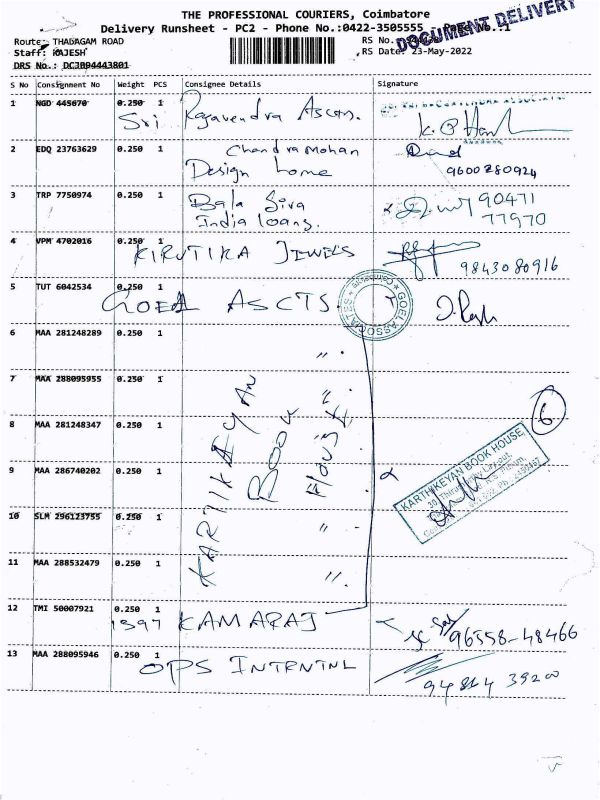 THE PROFESSIONAL COURIERS, Coimbatore
DOCUMENT DELIVERY
Delivery Runsheet - PC2 - Phone No.:0422-3505555 Page No. 1
Route: THADAGAM ROAD RS No.
Staff: RAJESH RS Date: 23-May-2022
DRS No.: DCJB94443801
S No Consignment No Weight PCS Consignee Details Signature
1 NGD 445670 0.250 1
Sri Ragavendra Ascts.
2 EDQ 23763629 0.250 1 Chandramohan
Design home 9600280924
3 TRP 7750974 0.250 1 Bala Siva 90471
India loans. 77970
4 VPM 4702016 0.250 1
KIRUTIKA JEWELS 9843080916
5 TUT 6042534 0.250 1
GOEL ASCTS.
GOEL ASSOCIATES
6 MAA 281248289 0.250 1 〃
7 MAA 288095955 0.250 1
8 MAA 281248347 0.250 1
KARTIKEYAN
BOOK
House
6
9 MAA 286740202 0.250 1
KARTHIKEYAN BOOK HOUSE
10 SLM 296123755 0.250 1 〃
11 MAA 288532479 0.250 1 〃
12 TMI 50007921 0.250 1
1397 KAMARAJ 96558-48466
13 MAA 288095946 0.250 1
OPS INTRNTNL
94864 39200